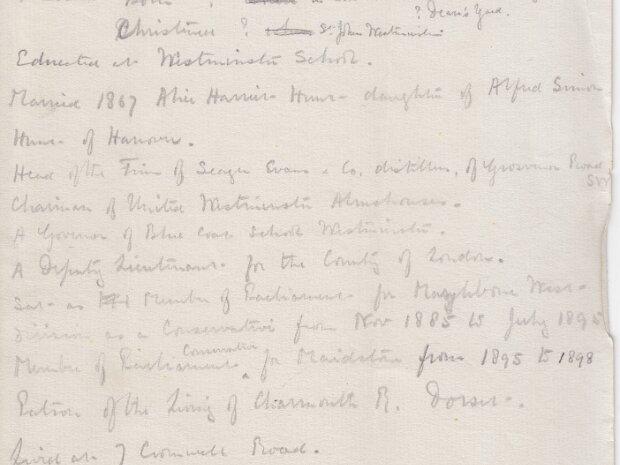 ? Dean's Yard.
Christened ? St. John Westminster
Educated at Westminster School.
Married 1867 Alice Harriet Hunt daughter of Alfred Simon
Hunt of Hanover.
Head of the Firm of Seager Evans & Co, distillers, of Grosvenor Road
SW
Chairman of United Westminster Almshouses.
A Governor of Blue Coat School Westminster.
A Deputy Lieutenant for the County of London.
Sat as Member of Parliament for Marylebone West
Division as a Conservative from Nov 1885 to July 1895
Conservative
Member of Parliament for Maidstone from 1895 to 1898
Patron of the Living of Charmouth R. Dorset.
Lived at 7 Cromwell Road.